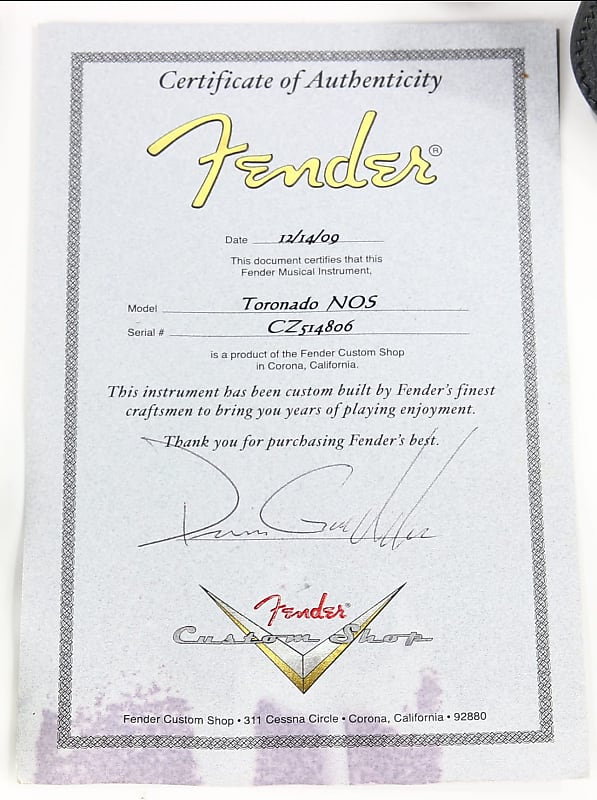 Certificate of Authenticity
Fender®
Date 12/14/09
This document certifies that this
Fender Musical Instrument,
Model Toronado NOS
Serial # CZ514806
is a product of the Fender Custom Shop
in Corona, California.
This instrument has been custom built by Fender's finest
craftsmen to bring you years of playing enjoyment.
Thank you for purchasing Fender's best.
Fender®
Custom Shop
Fender Custom Shop • 311 Cessna Circle • Corona, California • 92880